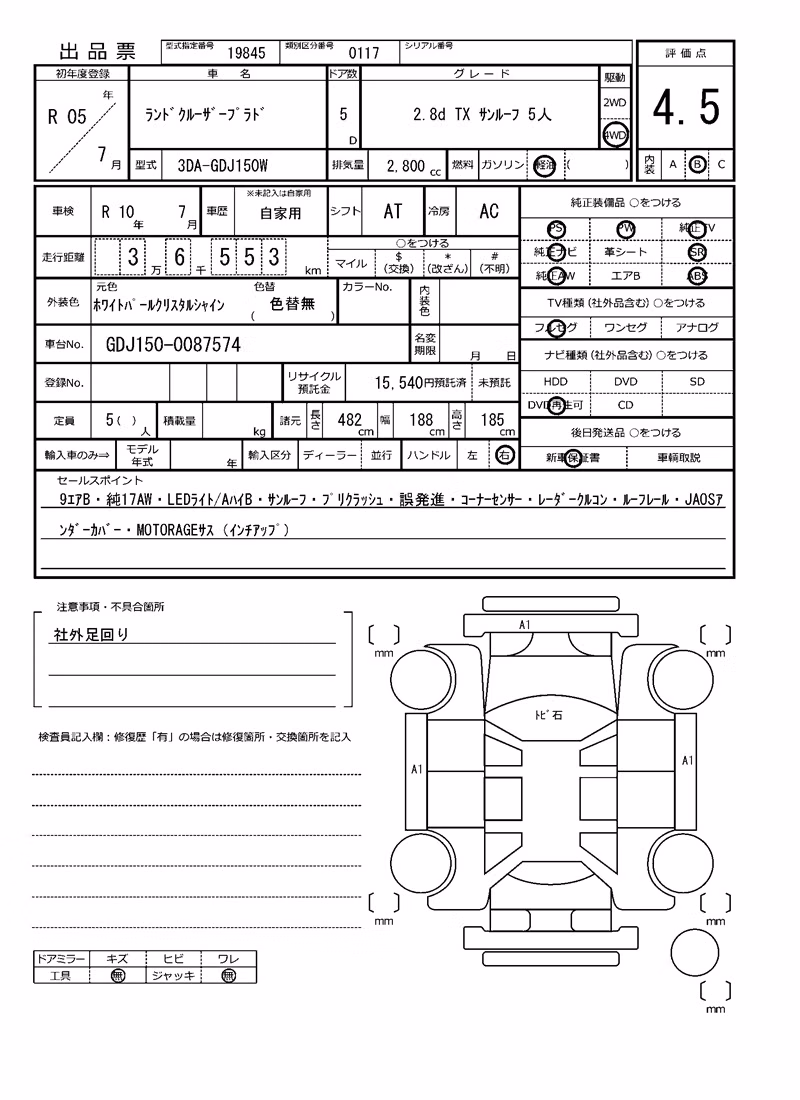 出品票
型式指定番号 19845 類別区分番号 0117 シリアル番号
評価点
4.5
内装 A B C
初年度登録 車名 ドア数 グレード 駆動
R 05 年 7 月
ランドクルーザープラド
5 D
2.8d TX サンルーフ 5人
2WD
4WD
型式 3DA-GDJ150W 排気量 2,800 cc 燃料 ガソリン 軽油 ( )
車検 R 10 年 7 月 車歴 ※未記入は自家用 自家用 シフト AT 冷房 AC
走行距離 3 万 6 千 5 5 3 km
○をつける
マイル $(交換) *(改ざん) #(不明)
外装色 元色 ホワイトパールクリスタルシャイン 色替 ( 色替無 ) カラーNo. 内装色
車台No. GDJ150-0087574 名変期限 月 日
登録No. リサイクル預託金 15,540円預託済 未預託
定員 5( )人 積載量 kg 諸元 長さ 482 cm 幅 188 cm 高さ 185 cm
輸入車のみ⇒ モデル年式 年 輸入区分 ディーラー 並行 ハンドル 左 右
純正装備品 ○をつける
PS PW 純正TV
純正ナビ 革シート SR
純正AW エアB ABS
TV種類(社外品含む)○をつける
フルセグ ワンセグ アナログ
ナビ種類(社外品含む)○をつける
HDD DVD SD
DVD再生可 CD
後日発送品 ○をつける
新車保証書 車輌取説
セールスポイント
9エアB・純17AW・LEDライト/AハイB・サンルーフ・プリクラッシュ・誤発進・コーナーセンサー・レーダークルコン・ルーフレール・JAOSア
ンダーカバー・MOTORAGEサス (インチアップ)
注意事項・不具合箇所
社外足回り
検査員記入欄：修復歴「有」の場合は修復箇所・交換箇所を記入
A1
mm
mm
トビ石
A1
A1
mm
mm
mm
ドアミラー キズ ヒビ ワレ
工具 無 ジャッキ 無